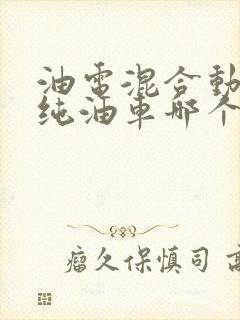 油電混合動
纯油車哪个
瘤久保慎司 高